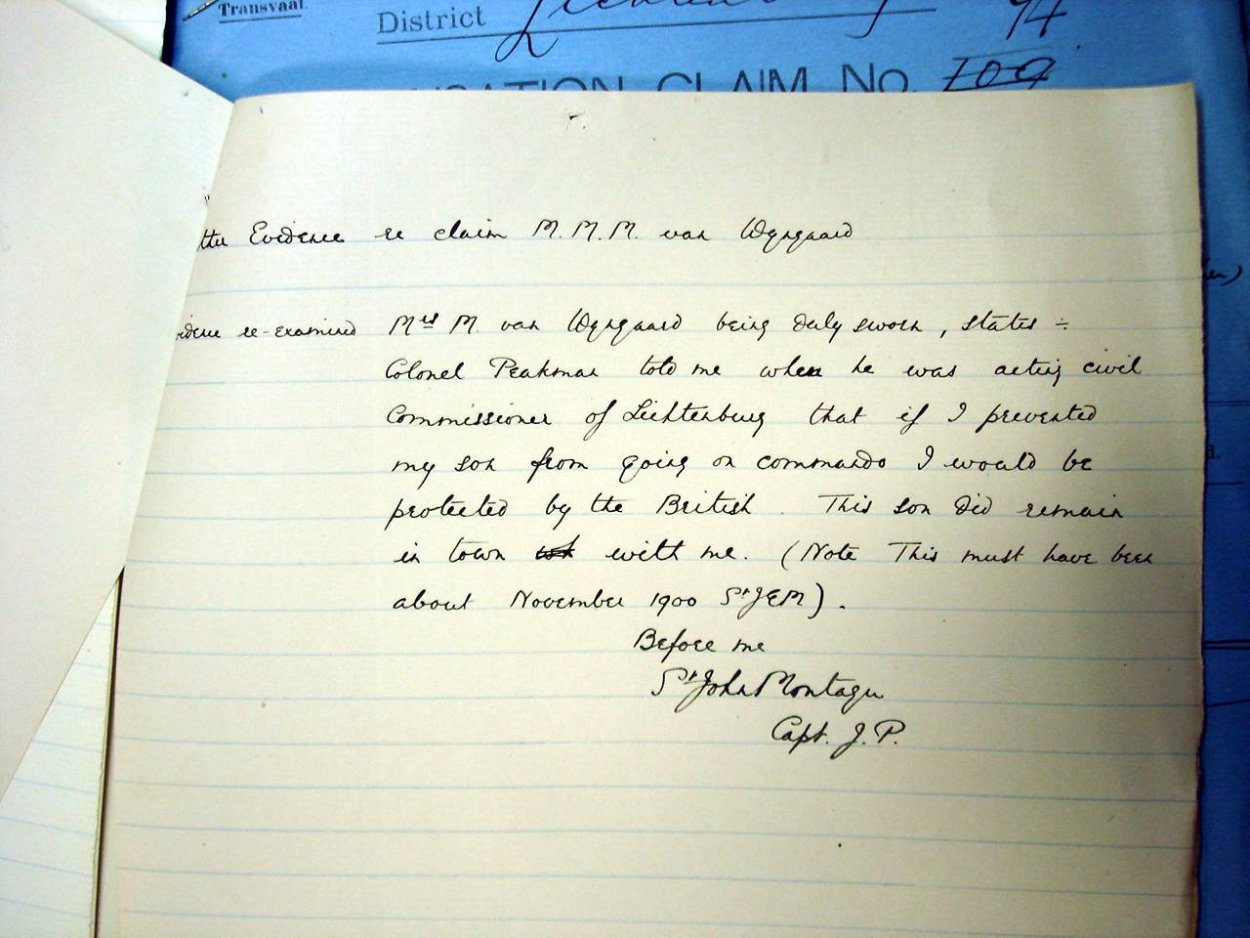 Transvaal.
District
CLAIM No. 709
Evidence re claim M. M. M. van Wyngaard
re-examined Mrs M. van Wyngaard being duly sworn, states ÷
Colonel Peakman told me when he was acting civil
Commissioner of Lichtenburg that if I prevented
my son from going on commando I would be
protected by the British. This son did remain
in town with me. (Note This must have been
about November 1900 St JEM).
Before me
St John Montagu
Capt. J. P.